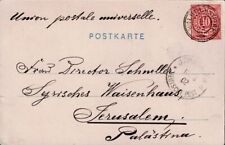 Union postale universelle.
10
POSTKARTE
Frau Director Schneller
Syrisches Waisenhaus,
Jerusalem.
Palästina.